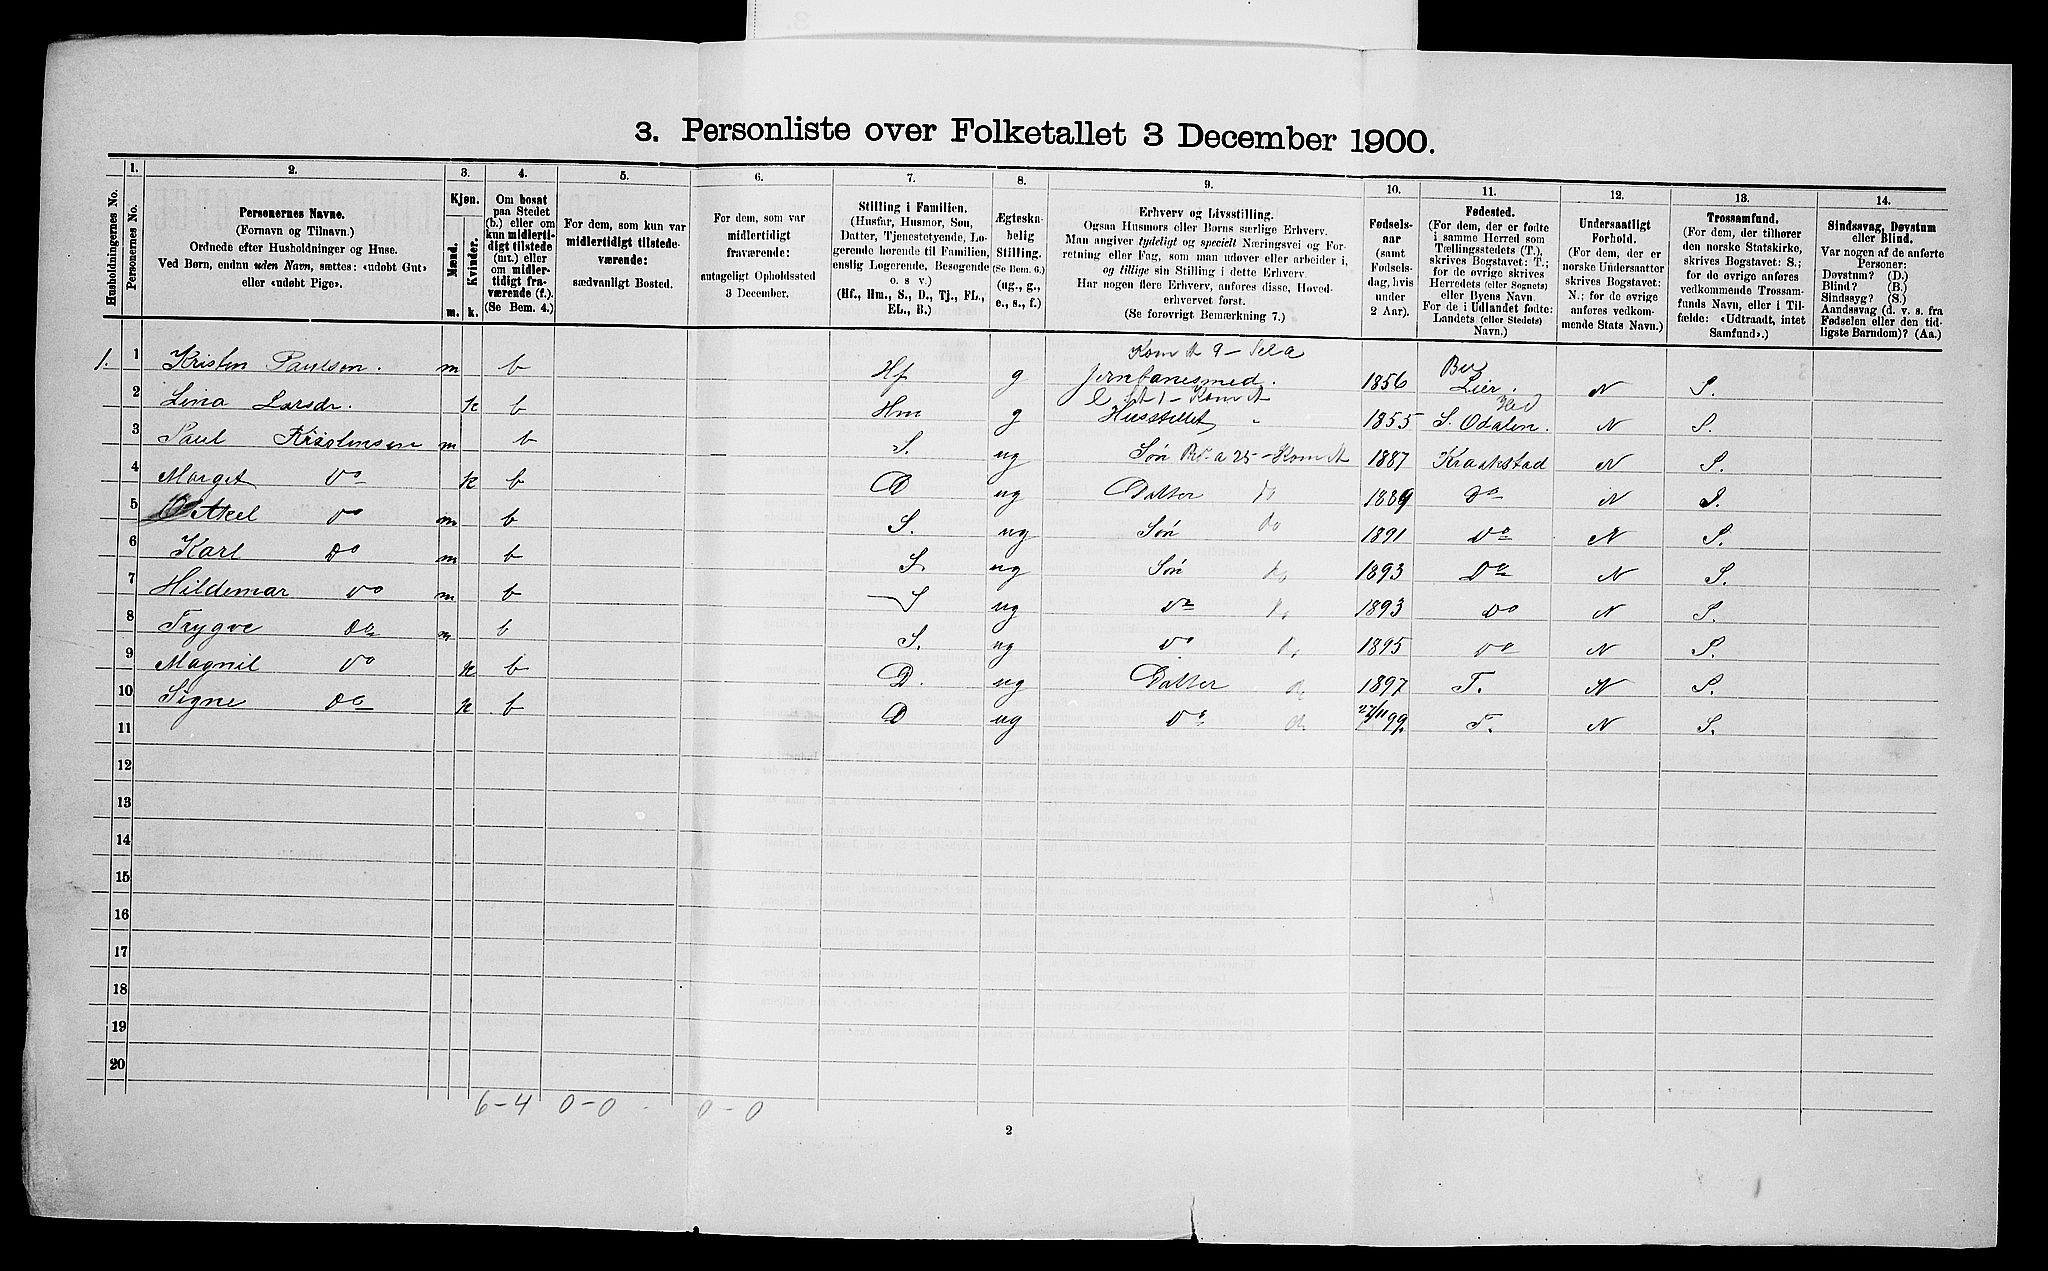 3. Personliste over Folketallet 3 December 1900.
Husholdningernes No.
1.
Personernes No.
2.
Personernes Navne.
(Fornavn og Tilnavn.)
Ordnede efter Husholdninger og Huse.
Ved Børn, endnu uden Navn, sættes: «udøbt Gut»
eller «udøbt Pige».
3.
Kjøn.
Mænd.
Kvinder.
m.
k.
4.
Om bosat
paa Stedet
(b.) eller om
kun midlerti-
digt tilstede
(mt.) eller
om midler-
tidigt fra-
værende (f.).
(Se Bem. 4.)
5.
For dem, som kun var
midlertidigt tilstede-
værende:
sædvanligt Bosted.
6.
For dem, som var
midlertidigt
fraværende:
antageligt Opholdssted
3 December.
7.
Stilling i Familien.
(Husfar, Husmor, Søn,
Datter, Tjenestetyende, Lo-
gerende hørende til Familien,
enslig Logerende, Besøgende
o. s v.)
(Hf., Hm., S., D., Tj., FL.,
EL., B.)
8.
Ægteska-
belig
Stilling.
(Se Bem. 6.)
(ug., g.,
e., s., f.)
9.
Erhverv og Livsstilling.
Ogsaa Husmors eller Børns særlige Erhverv.
Man angiver tydeligt og specielt Næringsvei og For-
retning eller Fag, som man udøver eller arbeider i,
og tillige sin Stilling i dette Erhverv.
Har nogen flere Erhverv, anføres disse, Hoved-
erhvervet først.
(Se forøvrigt Bemærkning 7.)
10.
Fødsels-
aar
(samt
Fødsels-
dag, hvis
under
2 Aar).
11.
Fødested.
(For dem, der er fødte
i samme Herred som
Tællingsstedets (T.),
skrives Bogstavet: T.;
for de øvrige skrives
Herredets (eller Sognets)
eller Byens Navn.
For de i Udlandet fødte:
Landets (eller Stedets)
Navn.)
12.
Undersaatligt
Forhold.
(For dem, der er
norske Undersaatter
skrives Bogstavet:
N.; for de øvrige
anføres vedkom-
mende Stats Navn.)
13.
Trossamfund.
(For dem, der tilhører
den norske Statskirke,
skrives Bogstavet: S.;
for de øvrige anføres
vedkommende Trossam-
funds Navn, eller i Til-
fælde: «Udtraadt, intet
Samfund».)
14.
Sindssvag, Døvstum
eller Blind.
Var nogen af de anførte
Personer:
Døvstum? (D.)
Blind? (B.)
Sindssyg? (S.)
Aandssvag (d. v. s. fra
Fødselen eller den tid-
ligste Barndom)? (Aa.)
1. 1 Kristen Paulsen. m b Hf g Jernbanesmed. 1856 Bu Lier. N S.
2 Lina Larsdr. k b Hm g Husstellet 1855 Hed S. Odalen. N S.
3 Paul Kristensen m b S. ug Søn 1887 Kraakstad N S.
4 Marget Do k b D ug Datter do 1889 Do N S.
5 Aksel Do m b S. ug Søn do 1891 Do N S.
6 Karl Do m b S. ug Søn do 1893 Do N S.
7 Hildemar Do m b S ug Do do 1893 Do N S.
8 Trygve Do m b S. ug Do do 1895 Do N S.
9 Magnil Do k b D. ug Datter do 1897 T. N S.
10 Signe Do k b D ug Do do 27/11 99. T. N S.
11
12
13
14
15
16
17
18
19
20
6-4 0-0 0-0
2